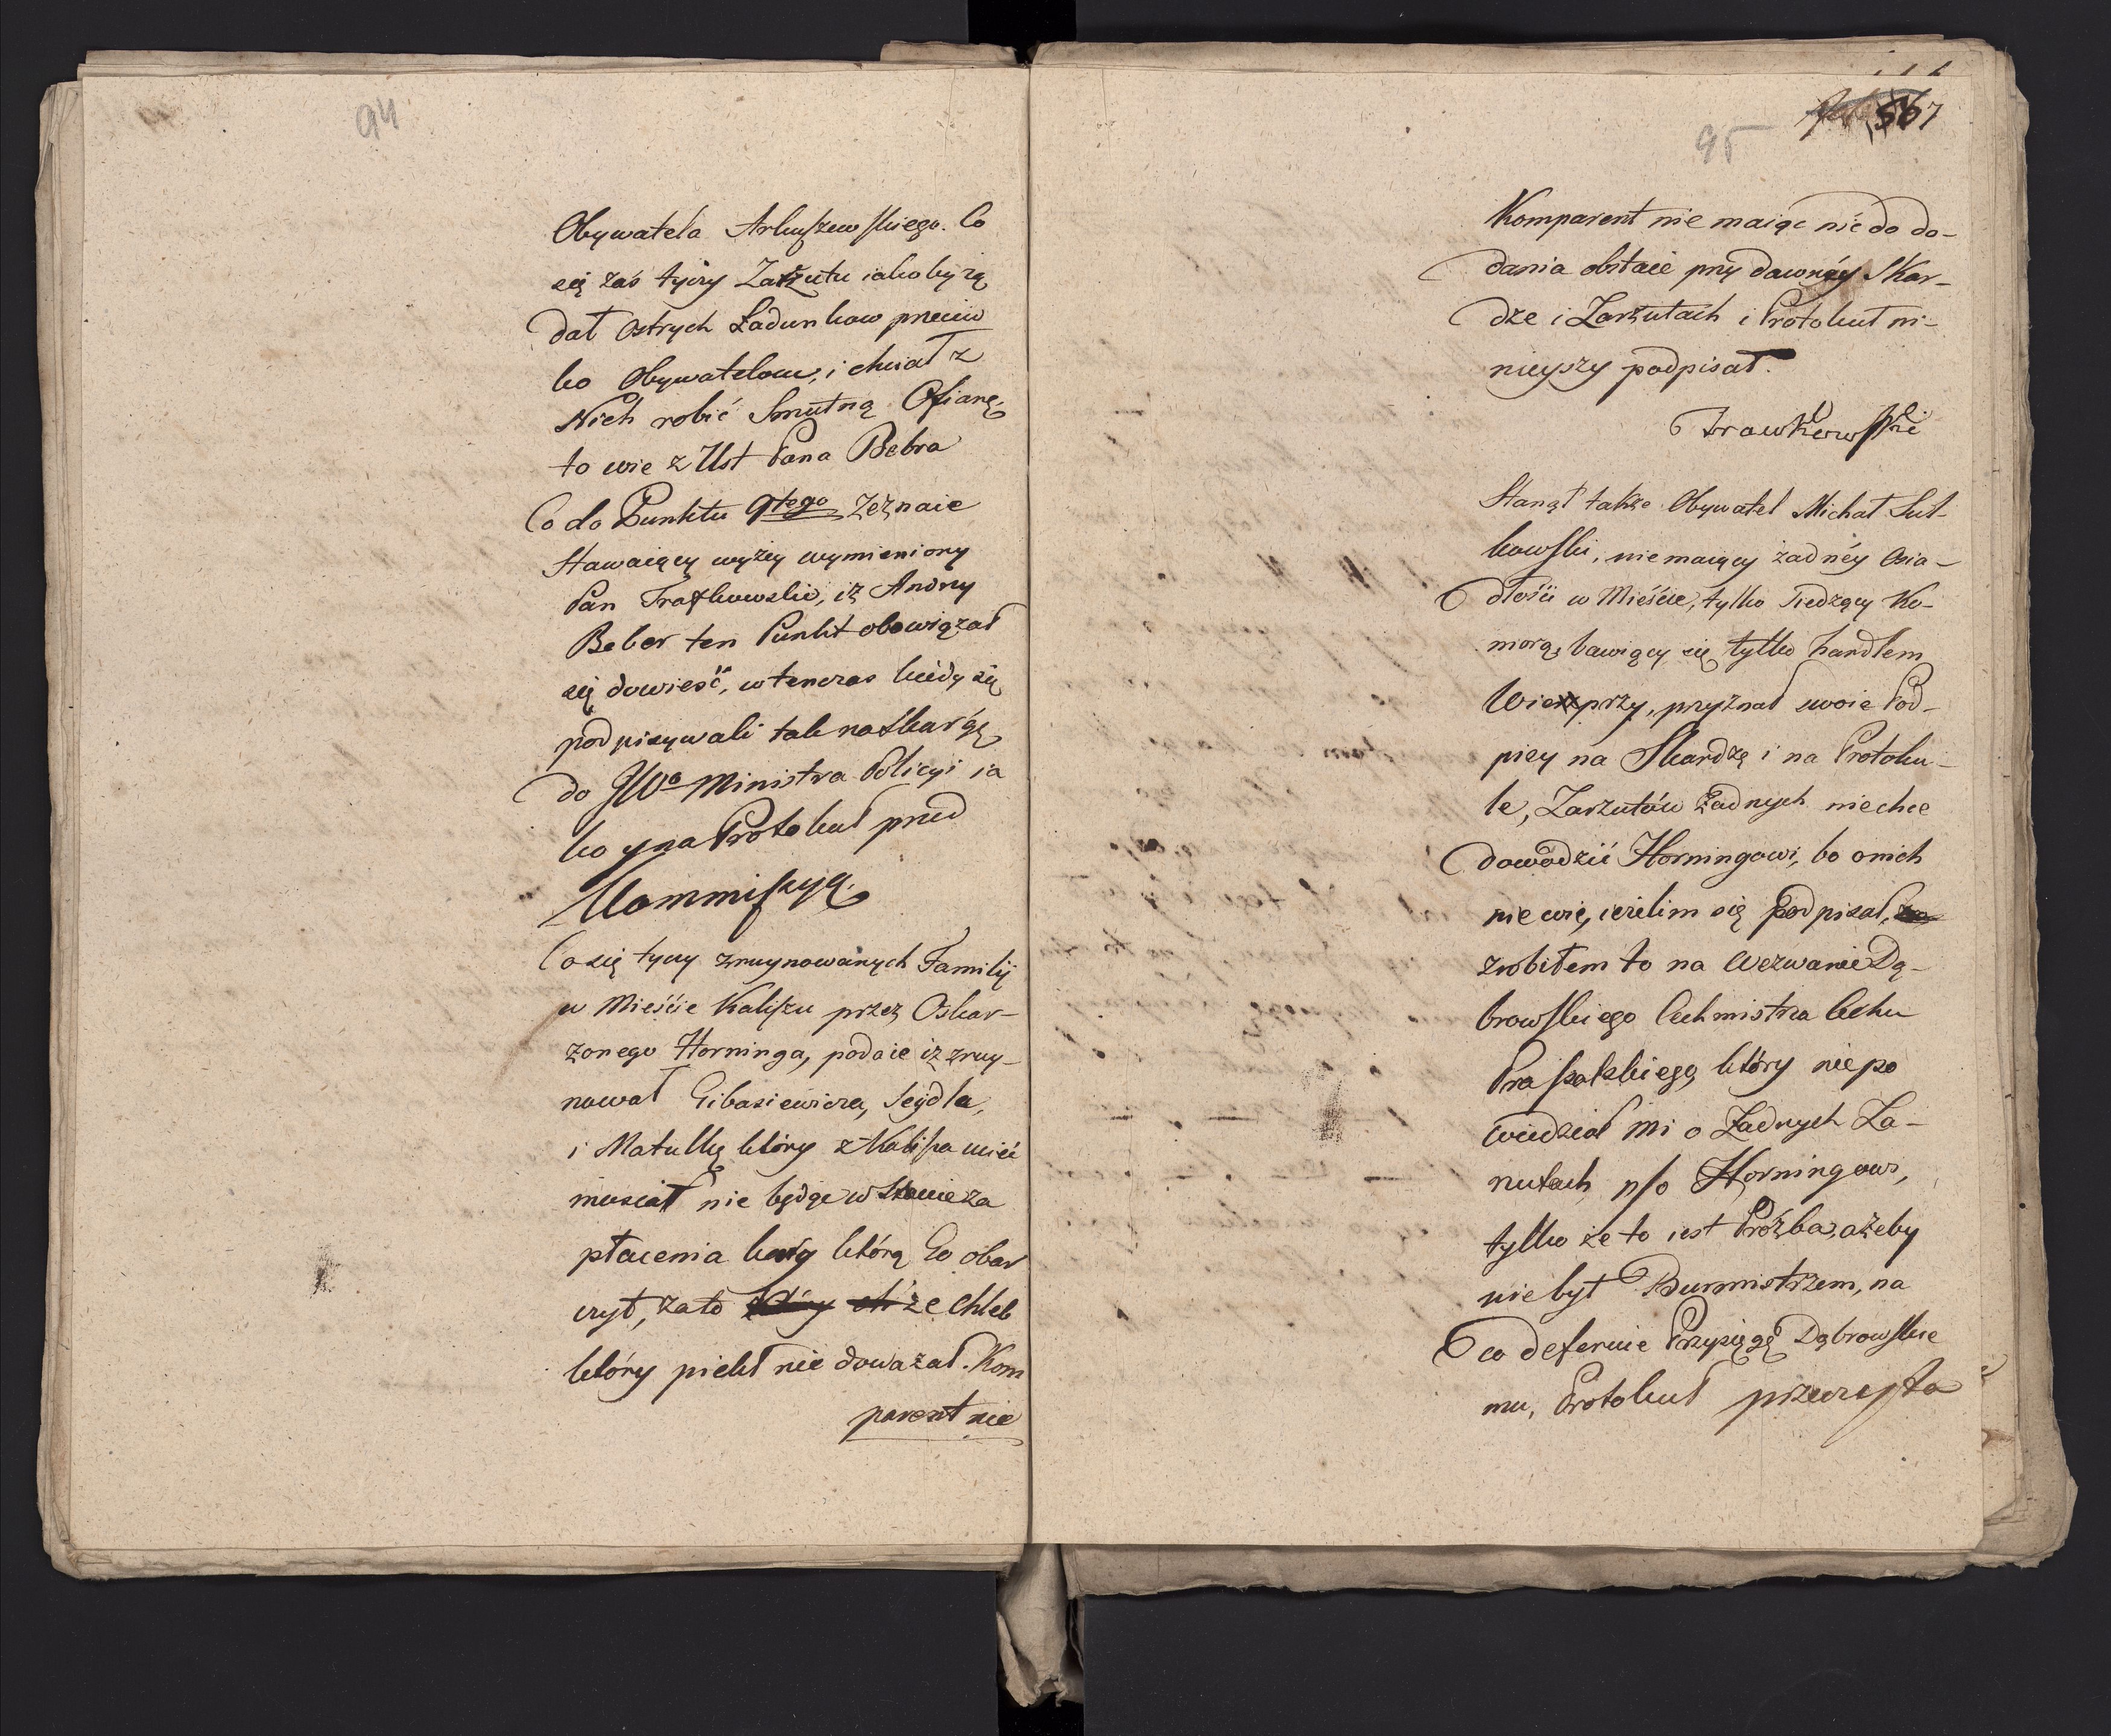 94
Obywatela Arkuszewskiego. Co
się zaś tyczy Zarzutu iakoby żą
dał Ostrych Ładunkow przeciw
ko Obywatelom, i chciał z
Nich robić Smutną Ofiarę,
to wie z Ust Pana Bebra
Co do Punktu 9tego Zeznaie
Stawaiący wyżey wymieniony
Pan Trafkowski, iż Andrzy
Beber ten Punkt obowiązał
się dowieść, wtenczas kiedy się
podpisywali tak na Skargę
do JWo Ministra Policyi ia
ko y na Protokuł przed
Kommissyą.
Co się tyczy zruynowanych Familij
w Mieście Kaliszu przez Oskar-
zonego Horninga, podaie iż zruy-
nował Gibasiewicza, Seydla,
i Matulkę który z Kalisza uciec
musiał nie będąc w Stanie za
płacenia kary którą Go obar
czył, za to że Chleb
który piekł nie doważał. Kom
parent nie
567
95
Komparent nie maiąc nic do do-
dania obstaie przy dawnéy Skar-
dze i Zarzutach i Protokuł ni-
nieyszy podpisał.
Trawkowski
Stanął także Obywatel Michał Sut-
kowski, nie maiący żadnéy Osia-
dłości w Mieście, tylko Siedzący Ko-
morą, bawiący się tylko handlem
Wieprzy, przyznał swoie Pod-
pisy na Skardze i na Protoku-
le, Zarzutów Żadnych nie chce
dowodzić Horningowi, bo o nich
nie wie, ieżelim się Podpisał,
zrobiłem to na Wezwanie Dą-
browskiego Cechmistrza Cechu
który nie po
wiedział mi o Żadnych Za-
rzutach p/o Horningowi,
tylko że to iest Prożba, ażeby
nie był Burmistrzem, na
co deferuie Przysięgę Dąbrowskie
mu, Protokuł przeczyta